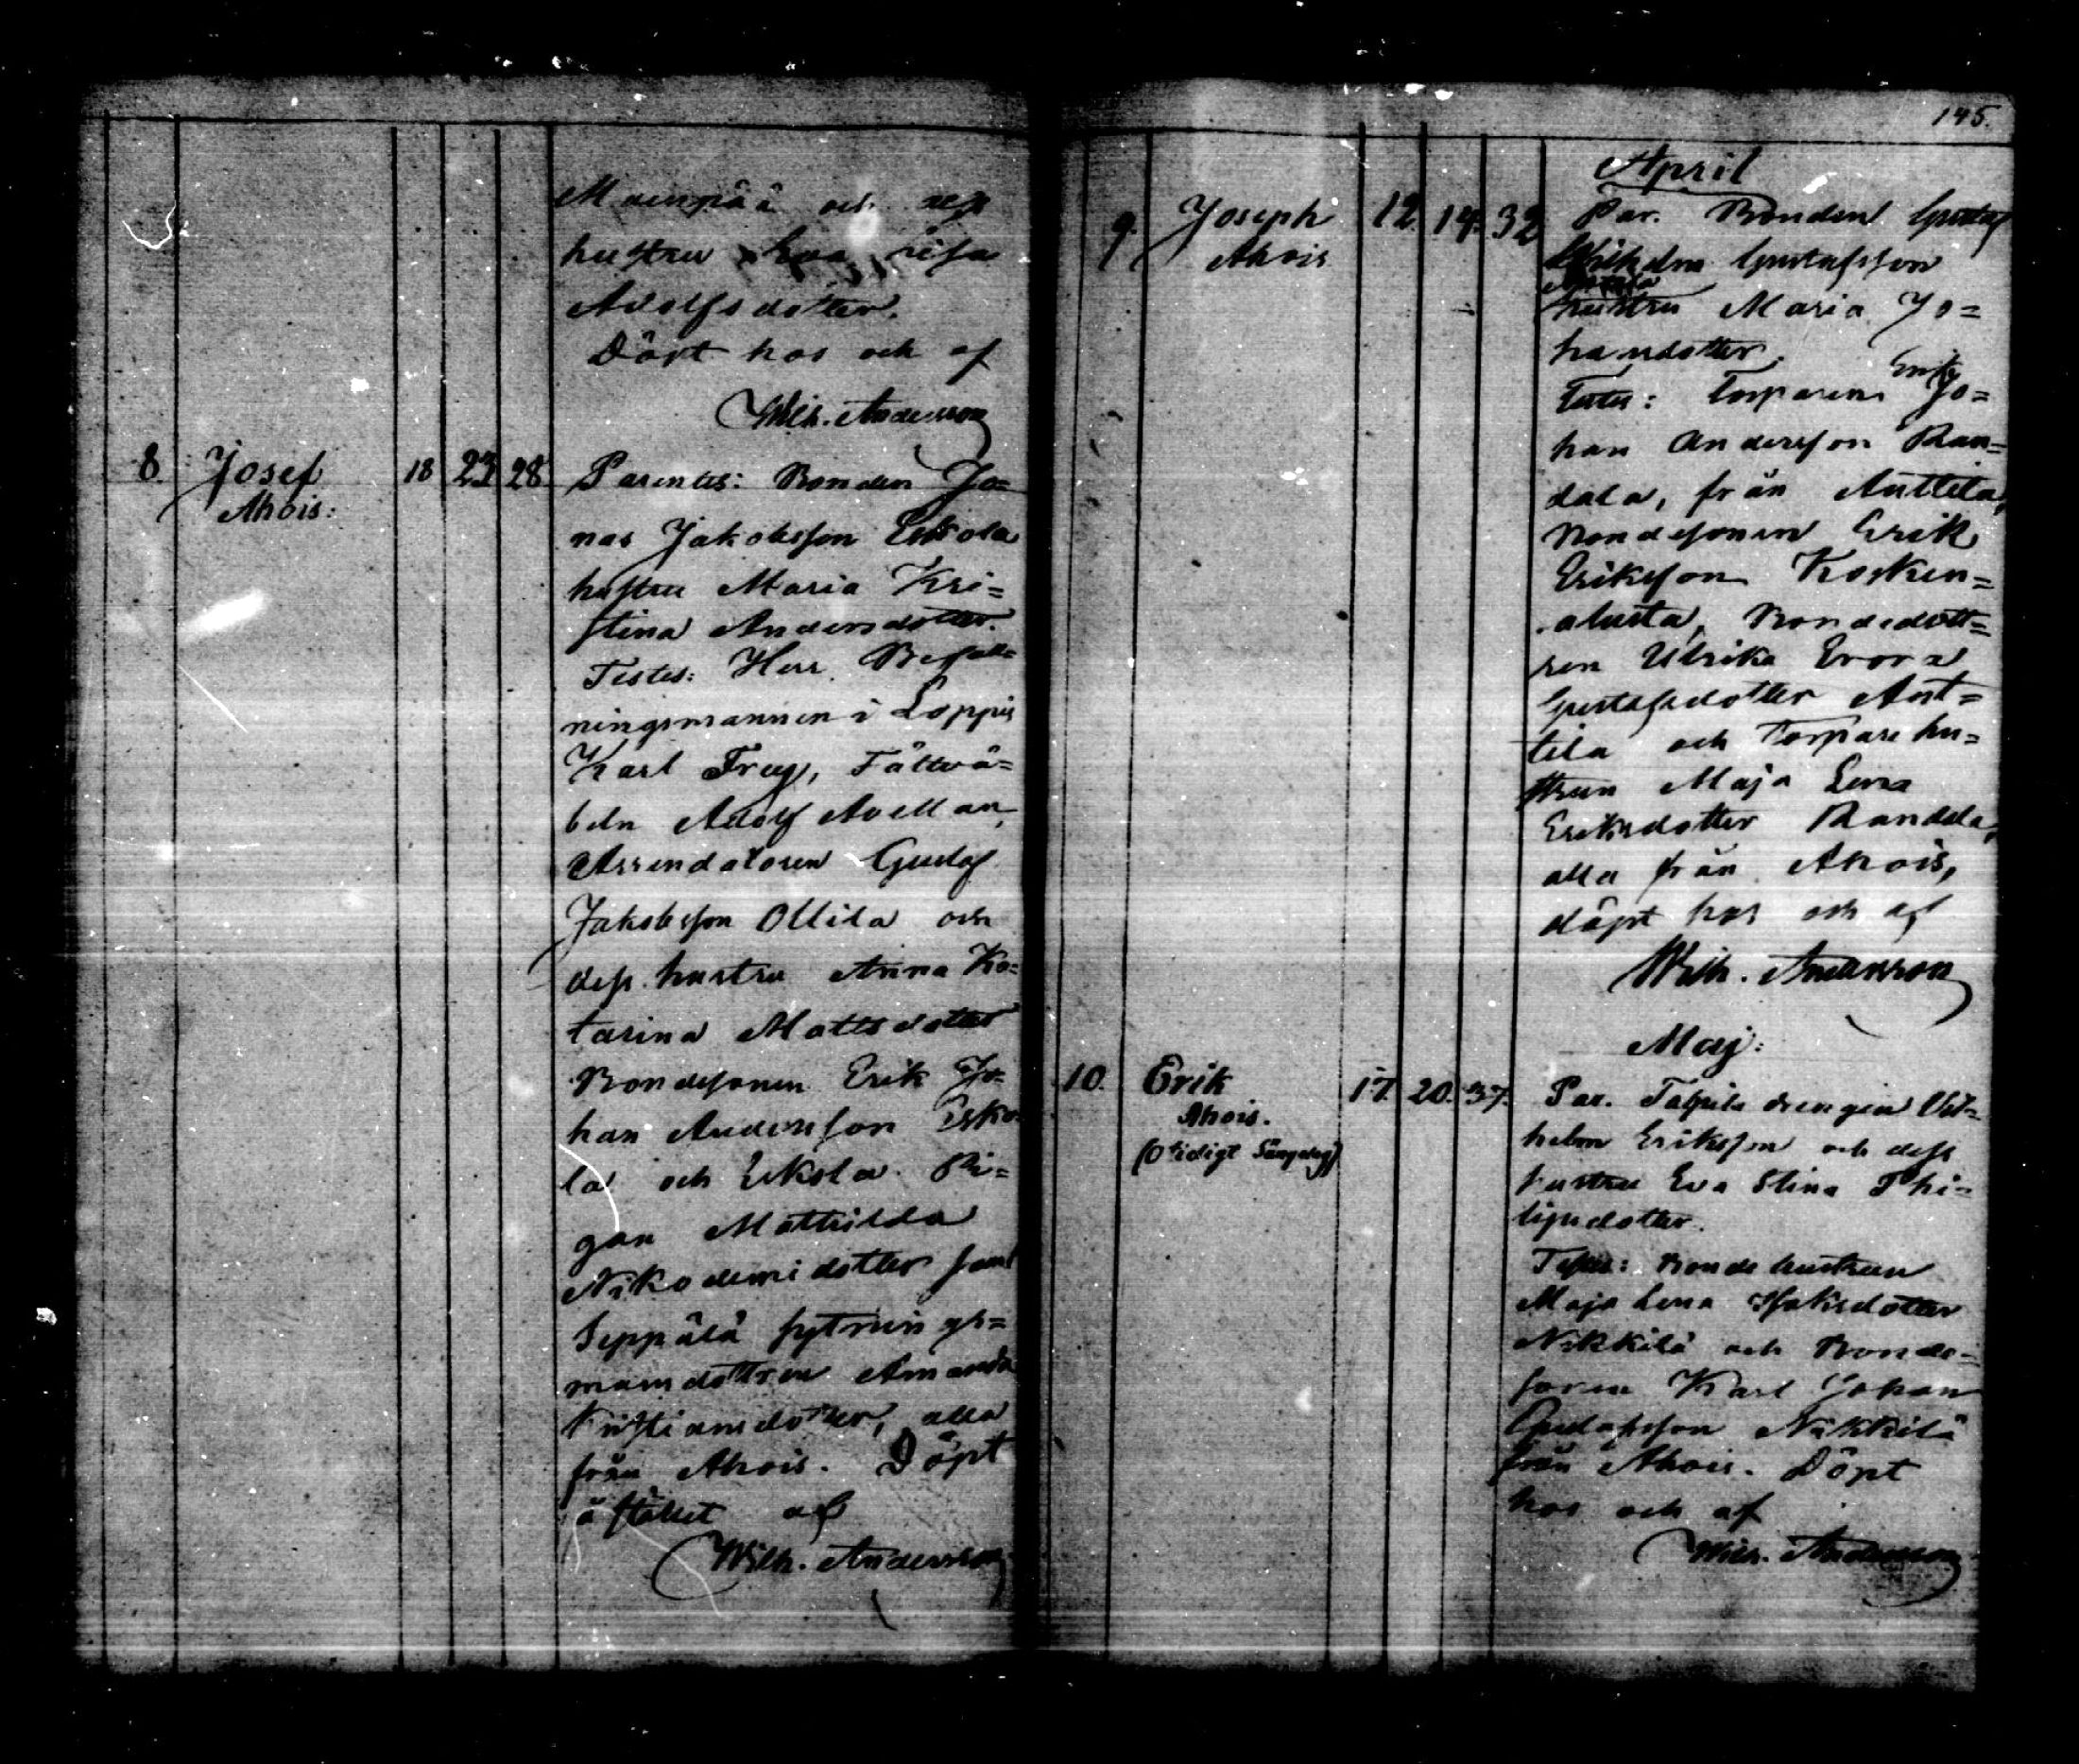 Mäenpää och dess
hustru Eva Lisa
Adolfsdotter.
Döpt hos och af
Wilh. Andersson
8. Josef 18 23 28 Parentes: Bonden Jo=
Ahois:
nas Jakobsson Eskola
hustru Maria Kri=
stina Andersdotter.
Testes: Herr Befall=
ningsmannen i Loppis
Karl Frey, Fältvä=
beln Adolf Avellan,
Arrendatoren Gustaf
Jakobsson Ollila och
dess hustru Anna Ka=
tarina Mattsdotter
Bondesonen Erik Jo=
han Andersson Esko=
la och Eskola Pi=
gan Mathilda
Nikodemidotter samt
Seppälä sytnings=
mansdottren Amanda
Kristiansdotter, alla
från Ahois. Döpt
å stället af
Wilh. Andersson
145.
April
9. Joseph 12 14. 32 Par. Bonden Gustaf
Ahois
Wilhelm Gustafsson
hustru Maria Jo=
handotter.
Testes: Torparen Jo=
han Andersson Ran=
dala, från Anttila,
Bondesonen Erik
Eriksson Kosken=
alusta, Bondedott=
ren Ulrika
Gustafsdotter Ant=
tila och Torparehu=
strun Maja Lena
Eriksdotter Randala,
alla från Ahois,
döpt hos och af
Wilh. Andersson
Maj:
10. Erik 17. 20. 37. Par. drengen Vil=
Ahois.
helm Eriksson och dess
(Otidigt Sängelag)
hustru Eva Stina Phi=
lipsdotter.
Testes: Bondehustrun
Maja Lena Isaksdotter
Nikkilä och Bonde=
sonen Karl Johan
Gustafsson Nikkilä
från Ahois. Döpt
hos och af
Wilh. Andersson